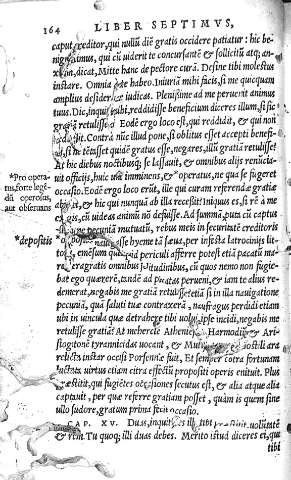 164 LIBER SEPTIMVS,
caput creditor, qui nullũ diẽ gratis occidere patiatur: hic be-
nignissimus, qui cũ uiderit te concursantẽ & sollicitũ atq; an-
xium, dicat, Mitte hanc de pectore curã. Desine tibi molestus
instare. Omnia à te habeo. Iniuriã mihi facis, si me quicquam
amplius desiderare iudicas. Plenissime ad me peruenit animus
tuus. Dic, inquit, tibi, reddidisse beneficium diceres illum, si sic
gratiã retulisset? Eodẽ ergo loco est, qui reddidit, & qui non
reddidit. Contrà nũc illud pone, si oblitus esset accepti benefi-
cij, si ne tẽtasset quidẽ gratus esse, negares, illũ gratiã retulisse?
At hic diebus noctibusq; se lassauit, & omnibus alijs renũcia-
uit officijs, huic uni imminens, & *operatus, ne qua se fugeret
*Pro opera-
tus, forte legẽ-
dũ operosus,
aut obseruans
occasio. Eodẽ ergo loco erũt, ille qui curam referendæ gratiæ
abiecit, & hic qui nunquã ab illa recessit? Iniquus es, si rẽ à me
exigis, cũ uideas animũ nõ defuisse. Ad summã, puta cũ captus
esses, me pecuniã mutuatũ, rebus meis in securitatẽ creditoris
*depositis
*oppositis, nauigasse hyeme tã sæua, per infesta latrocinijs lit-
tora, emensum quicquid periculi afferre potest etiã pacatũ ma-
re, peragratis omnibus solitudinibus, cũ quos nemo non fugie-
bat ego quærerẽ, tandẽ ad Piratas perueni, & iam te alius re-
demerat, negabis me gratiã retulisse? etiã si in illa nauigatione
pecuniã, quã saluti tuæ contraxerã, naufragus perdidi? etiam
si in uincula quæ detrahere tibi uolui, ipse incidi, negabis me
retulisse gratiã? At mehercle Athenienses Harmodiũ & Ari-
stogitonẽ tyrannicidas uocant, & Mutio manus in hostili ara
relicta instar occisi Porsennæ fuit. Et semper contra fortunam
luctata uirtus etiam citra effectũ propositi operis enituit. Plus
præstitit, qui fugiẽtes occasiones secutus est, & alia atque alia
captauit, per quæ referre gratiam posset, quàm is quem sine
ullo sudore, gratum prima fecit occasio.
CAP. XV. Duas, inquit, res ille tibi præstitit, uoluntatẽ
& rem. Tu quoq; illi duas debes. Merito istud diceres ei, qui
tibi